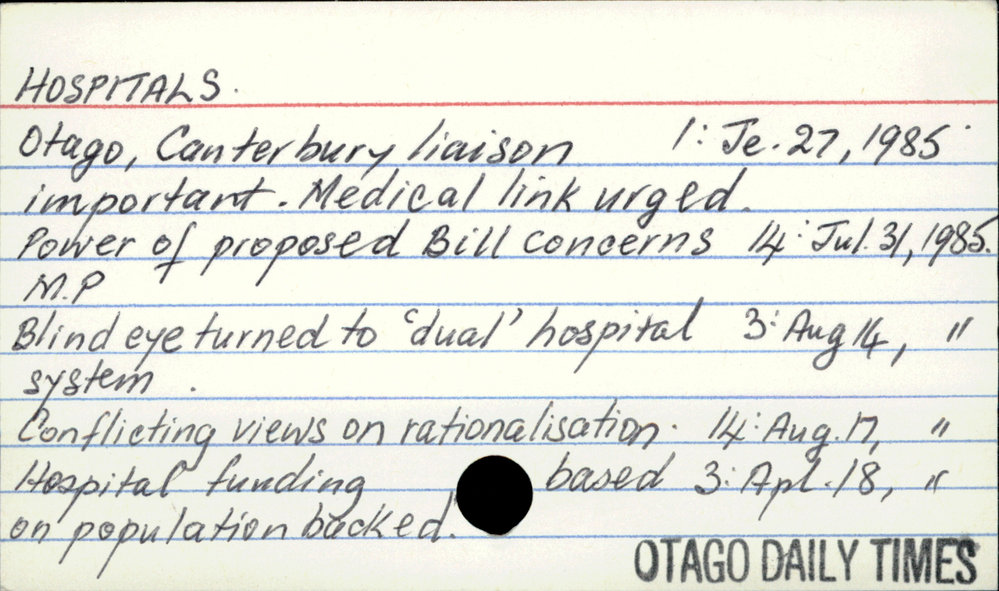 HOSPITALS.
Otago, Canterbury liaison 1: Je. 27, 1985
important. Medical link urged.
Power of proposed Bill concerns 14: Jul. 31, 1985.
M.P
Blind eye turned to 'dual' hospital 3: Aug 14, "
system.
Conflicting views on rationalisation. 14: Aug. 17, "
Hospital funding based 3: Apl. 18, "
on population backed.
OTAGO DAILY TIMES